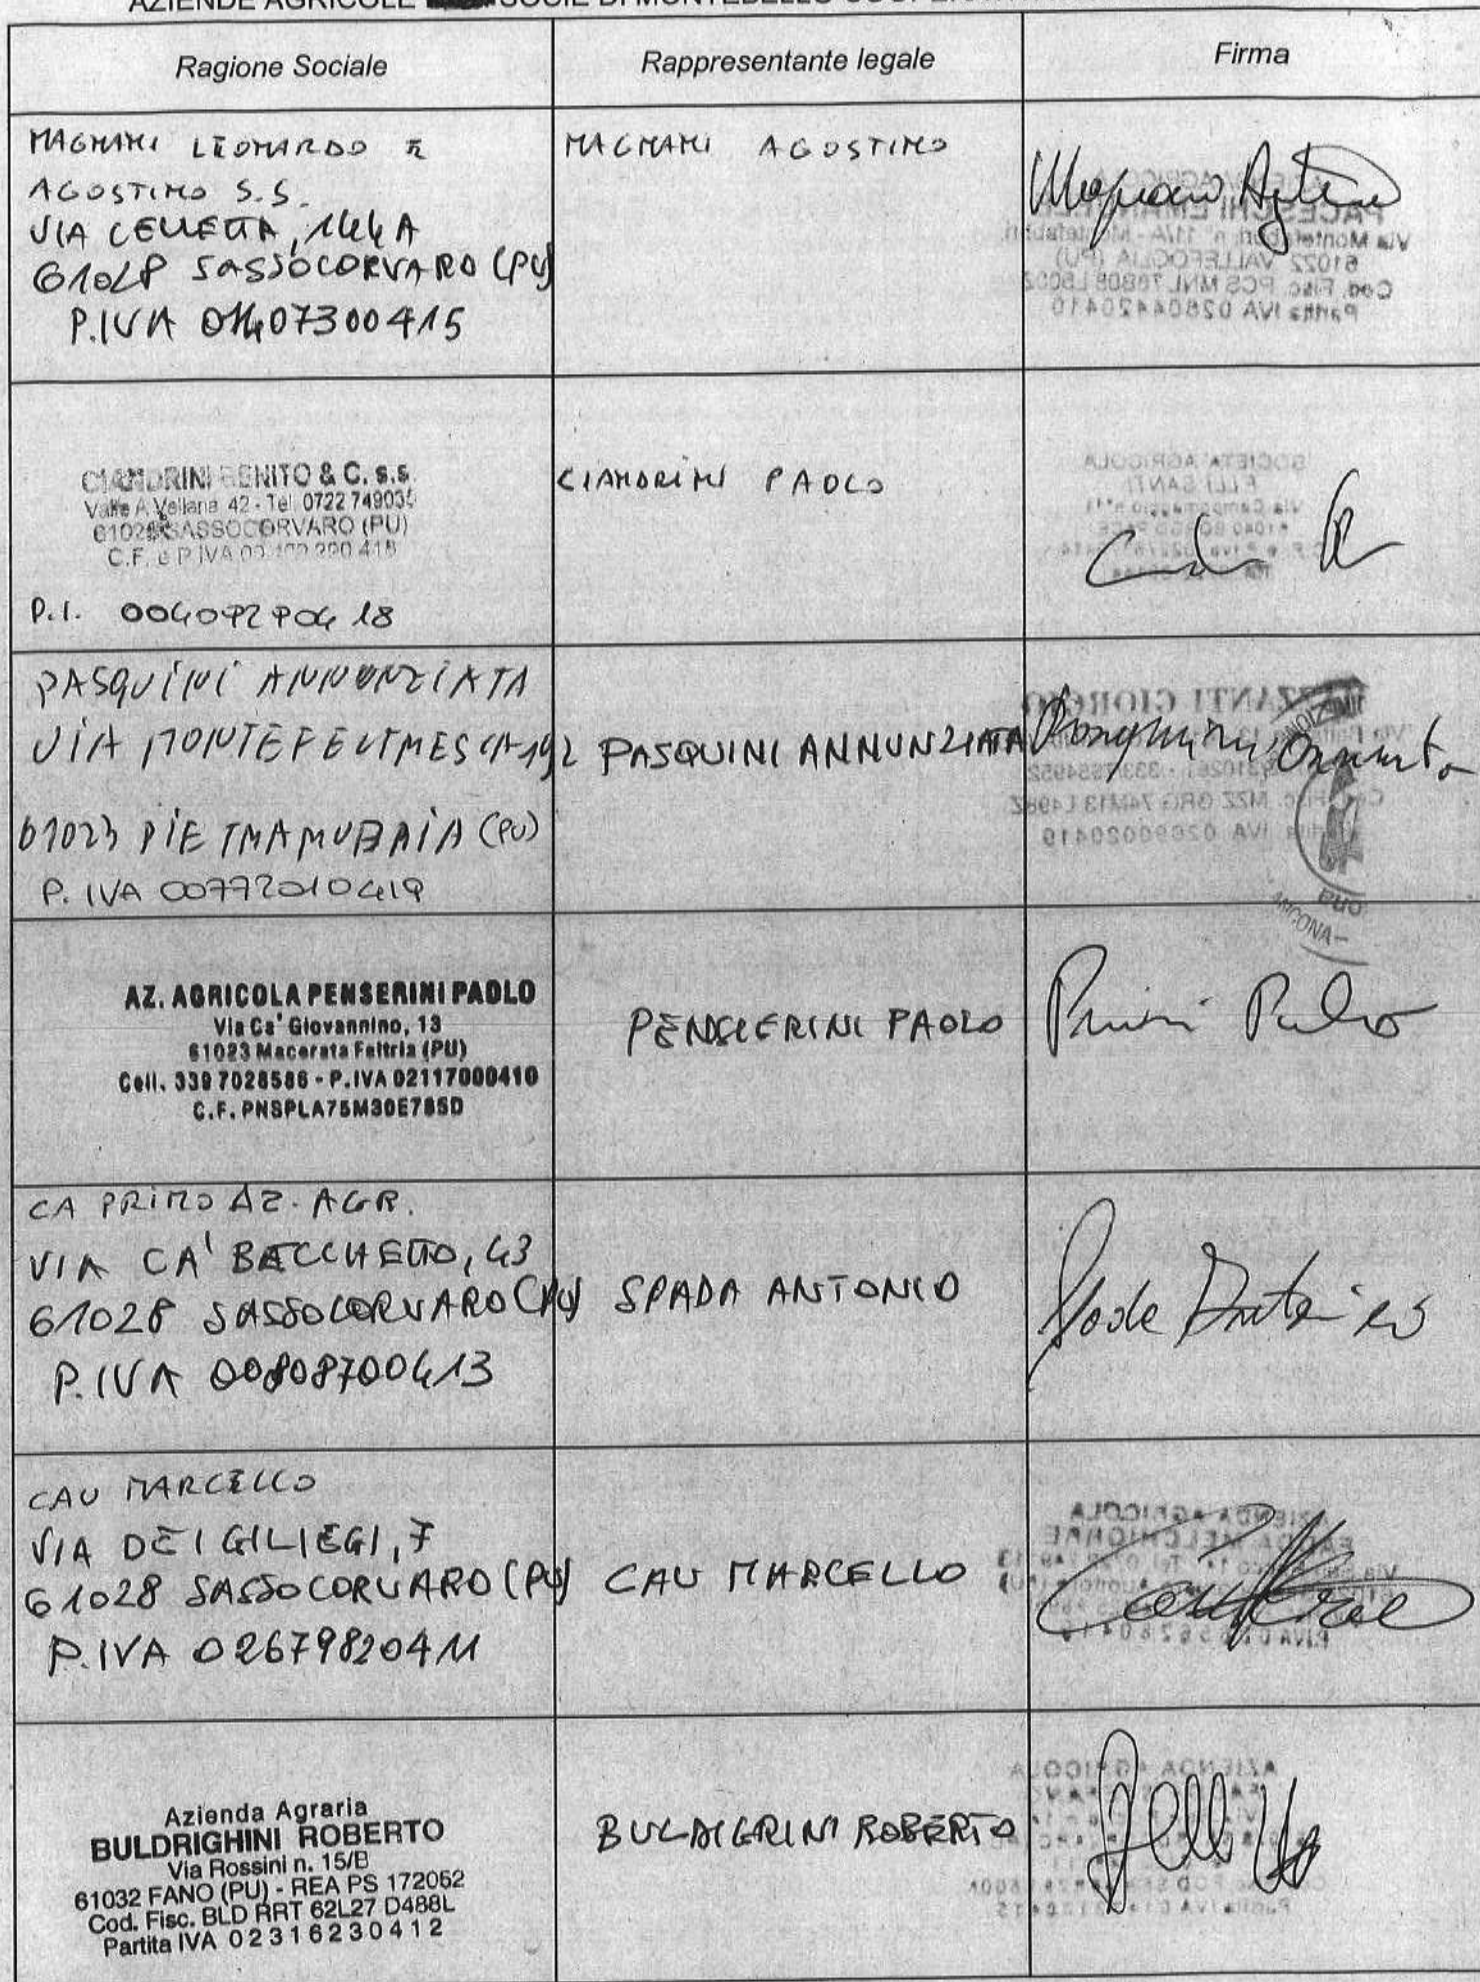 AZIENDE AGRICOLE SOCIE DI MONTEBELLO
Ragione Sociale
Rappresentante legale
Firma
MAGNANI LEONARDO E
AGOSTINO S.S.
VIA CELLETTA, 144A
61028 SASSOCORVARO (PU)
P.IVA 01407300415
MAGNANI AGOSTINO
CIANDRINI BENITO & C. s.s.
42 - Tel. 0722 749035
61028 SASSOCORVARO (PU)
C.F. e P.IVA
P.I. 00409290418
CIANDRINI PAOLO
PASQUINI ANNUNZIATA
VIA 192
61023 PIETRARUBBIA (PU)
P. IVA 00772010419
PASQUINI ANNUNZIATA
ANCONA
AZ. AGRICOLA PENSERINI PAOLO
Via Ca' Giovannino, 13
61023 Macerata Feltria (PU)
Cell. 339 7028586 - P.IVA 02117000410
C.F. PNSPLA75M30E785D
PENSIERINI PAOLO
CA PRIMO AZ. AGR.
VIA CA' BECCHETTO, 43
61028 SASSOCORVARO (PU)
P.IVA 00808700413
SPADA ANTONIO
CAU MARCELLO
VIA DEI GILIEGI, 7
61028 SASSOCORVARO (PU)
P.IVA 02679820411
CAU MARCELLO
Azienda Agraria
BULDRIGHINI ROBERTO
Via Rossini n. 15/B
61032 FANO (PU) - REA PS 172052
Cod. Fisc. BLD RRT 62L27 D488L
Partita IVA 02316230412
ROBERTO